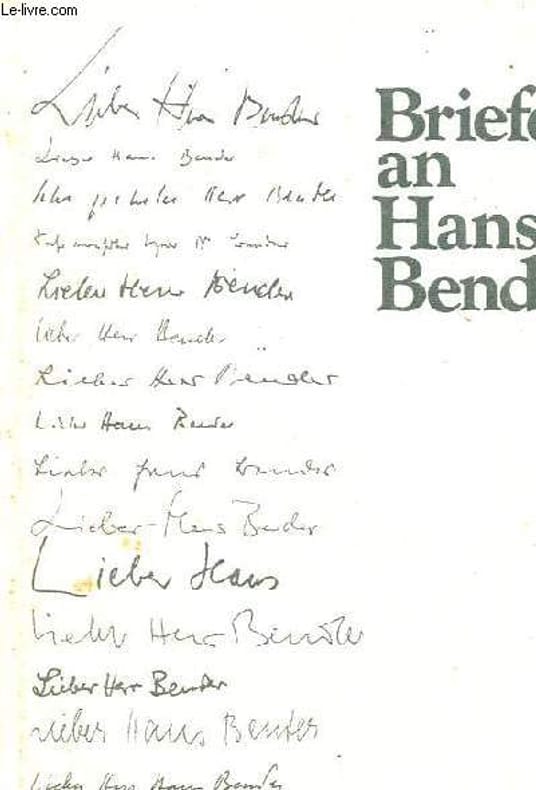 Le-livre.com
Briefe
an
Hans
Bend
Lieber Herr Bender
Lieber Hans Bender
Sehr geehrter Herr Bender
Lieber Herr Bender
Lieber Herr Bender
Lieber Herr Bender
Lieber Hans Bender
Lieber Hans Bender
Lieber Hans Bender
Lieber Hans
Lieber Herr Bender
Lieber Herr Bender
Lieber Hans Bender
Lieber Herr Hans Bender